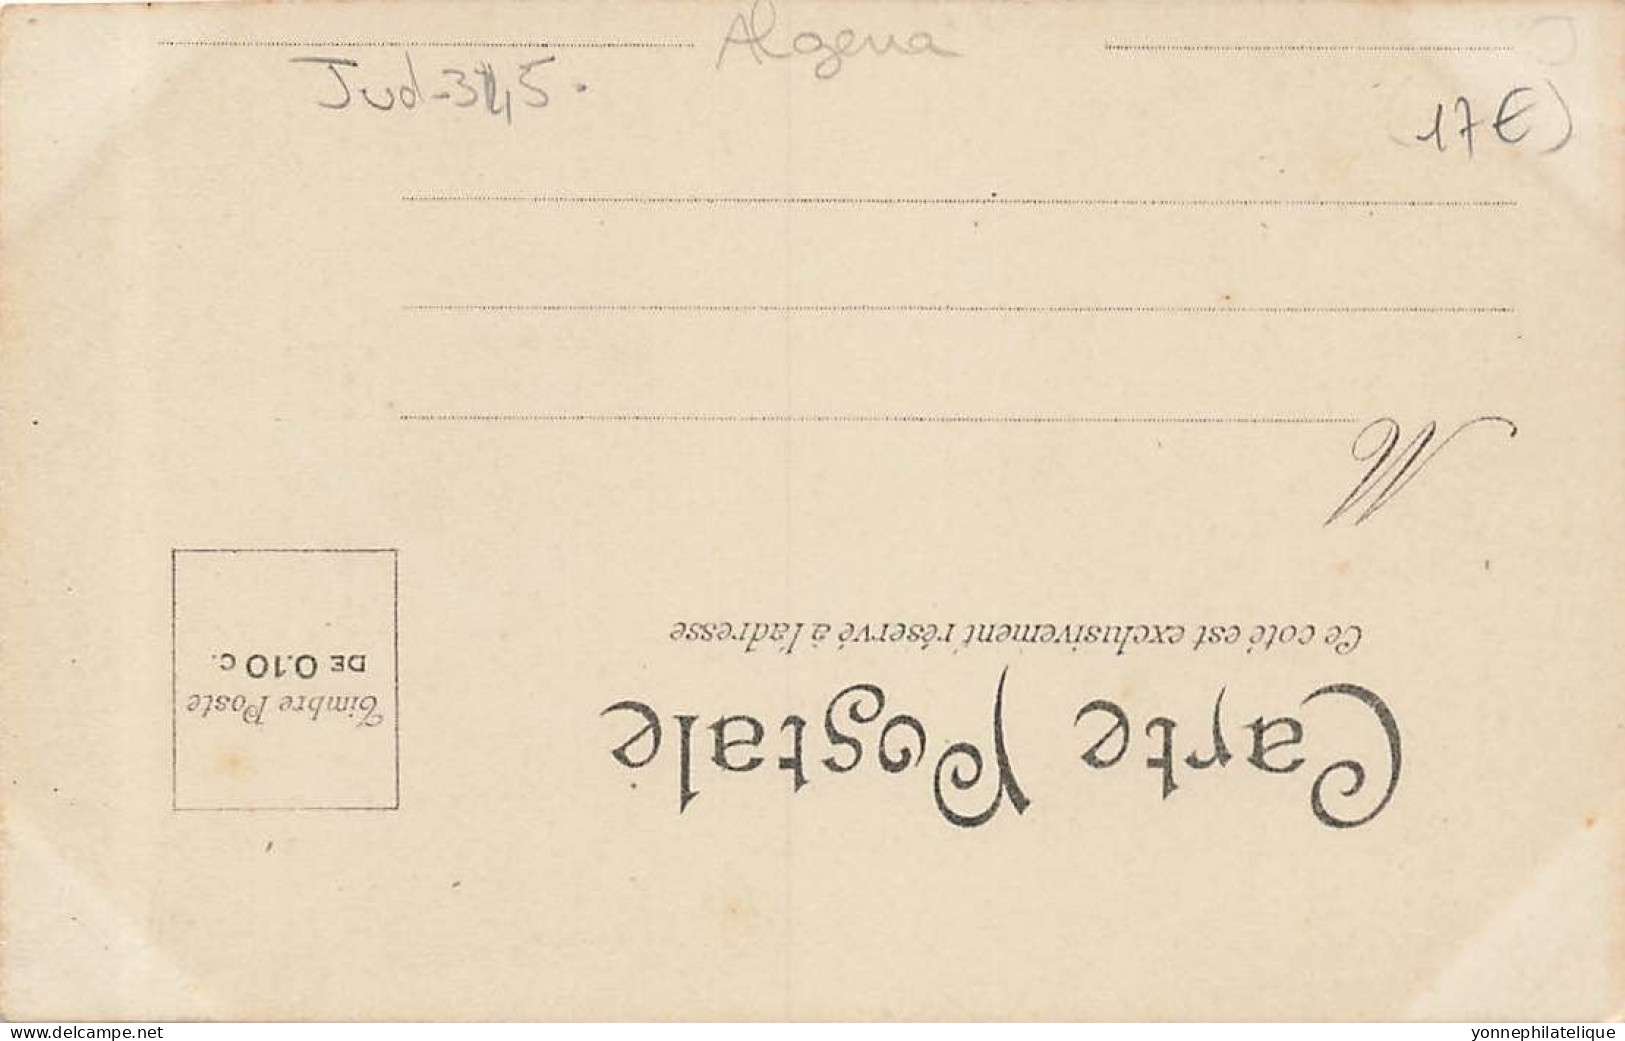 Algeria
Jud-345.
(17€)
M
Ce coté est exclusivement réservé à l'adresse
Carte Postale
Timbre Poste
DE 0.10 c.
www.delcampe.net
yonnephilatelique